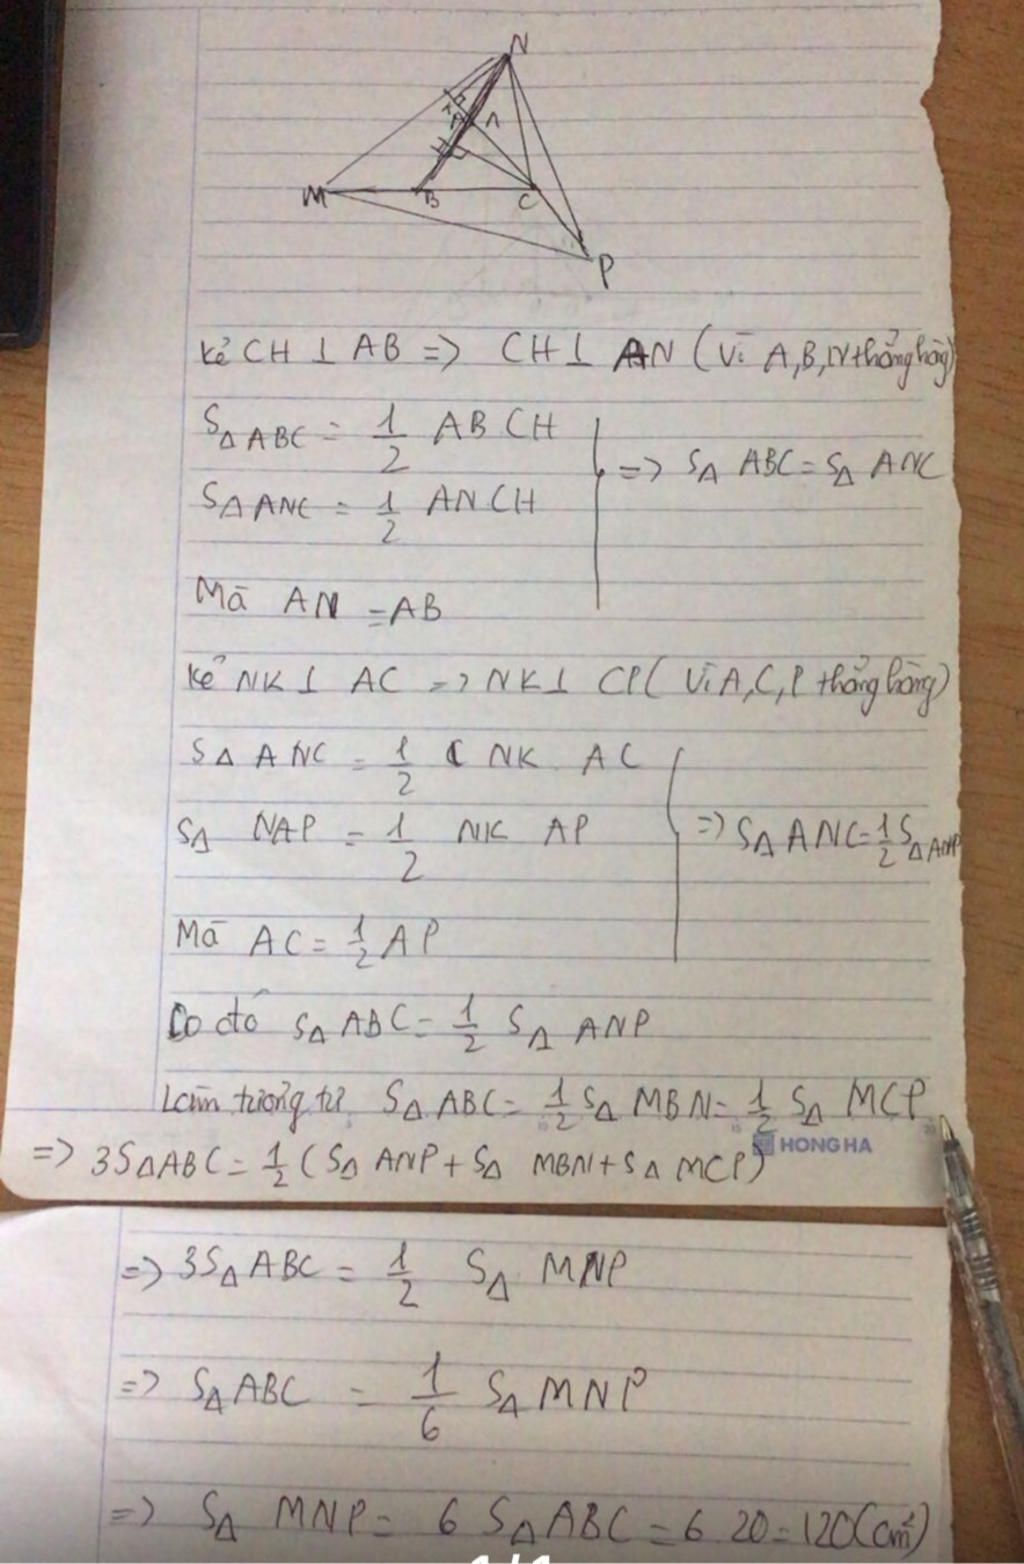 N
A
M B C
P
Kẻ CH ⊥ AB => CH ⊥ AN (Vì A,B,N thẳng hàng)
S△ABC = 1/2 AB CH
=> S△ ABC = S△ ANC
S△ANC = 1/2 AN CH
Mà AN = AB
Kẻ NK ⊥ AC => NK ⊥ CP ( Vì A,C,P thẳng hàng)
S△ ANC = 1/2 NK AC
S△ NAP = 1/2 NK AP
=> S△ ANC = 1/2 S△ANP
Mà AC = 1/2 AP
Do đó S△ ABC = 1/2 S△ ANP
Làm tương tự S△ ABC = 1/2 S△ MBN = 1/2 S△ MCP
HONG HA
=> 3S△ABC = 1/2 (S△ ANP + S△ MBN + S△ MCP)
=> 3S△ ABC = 1/2 S△ MNP
=> S△ ABC = 1/6 S△ MNP
=> S△ MNP = 6 S△ ABC = 6 20 = 120(cm²)